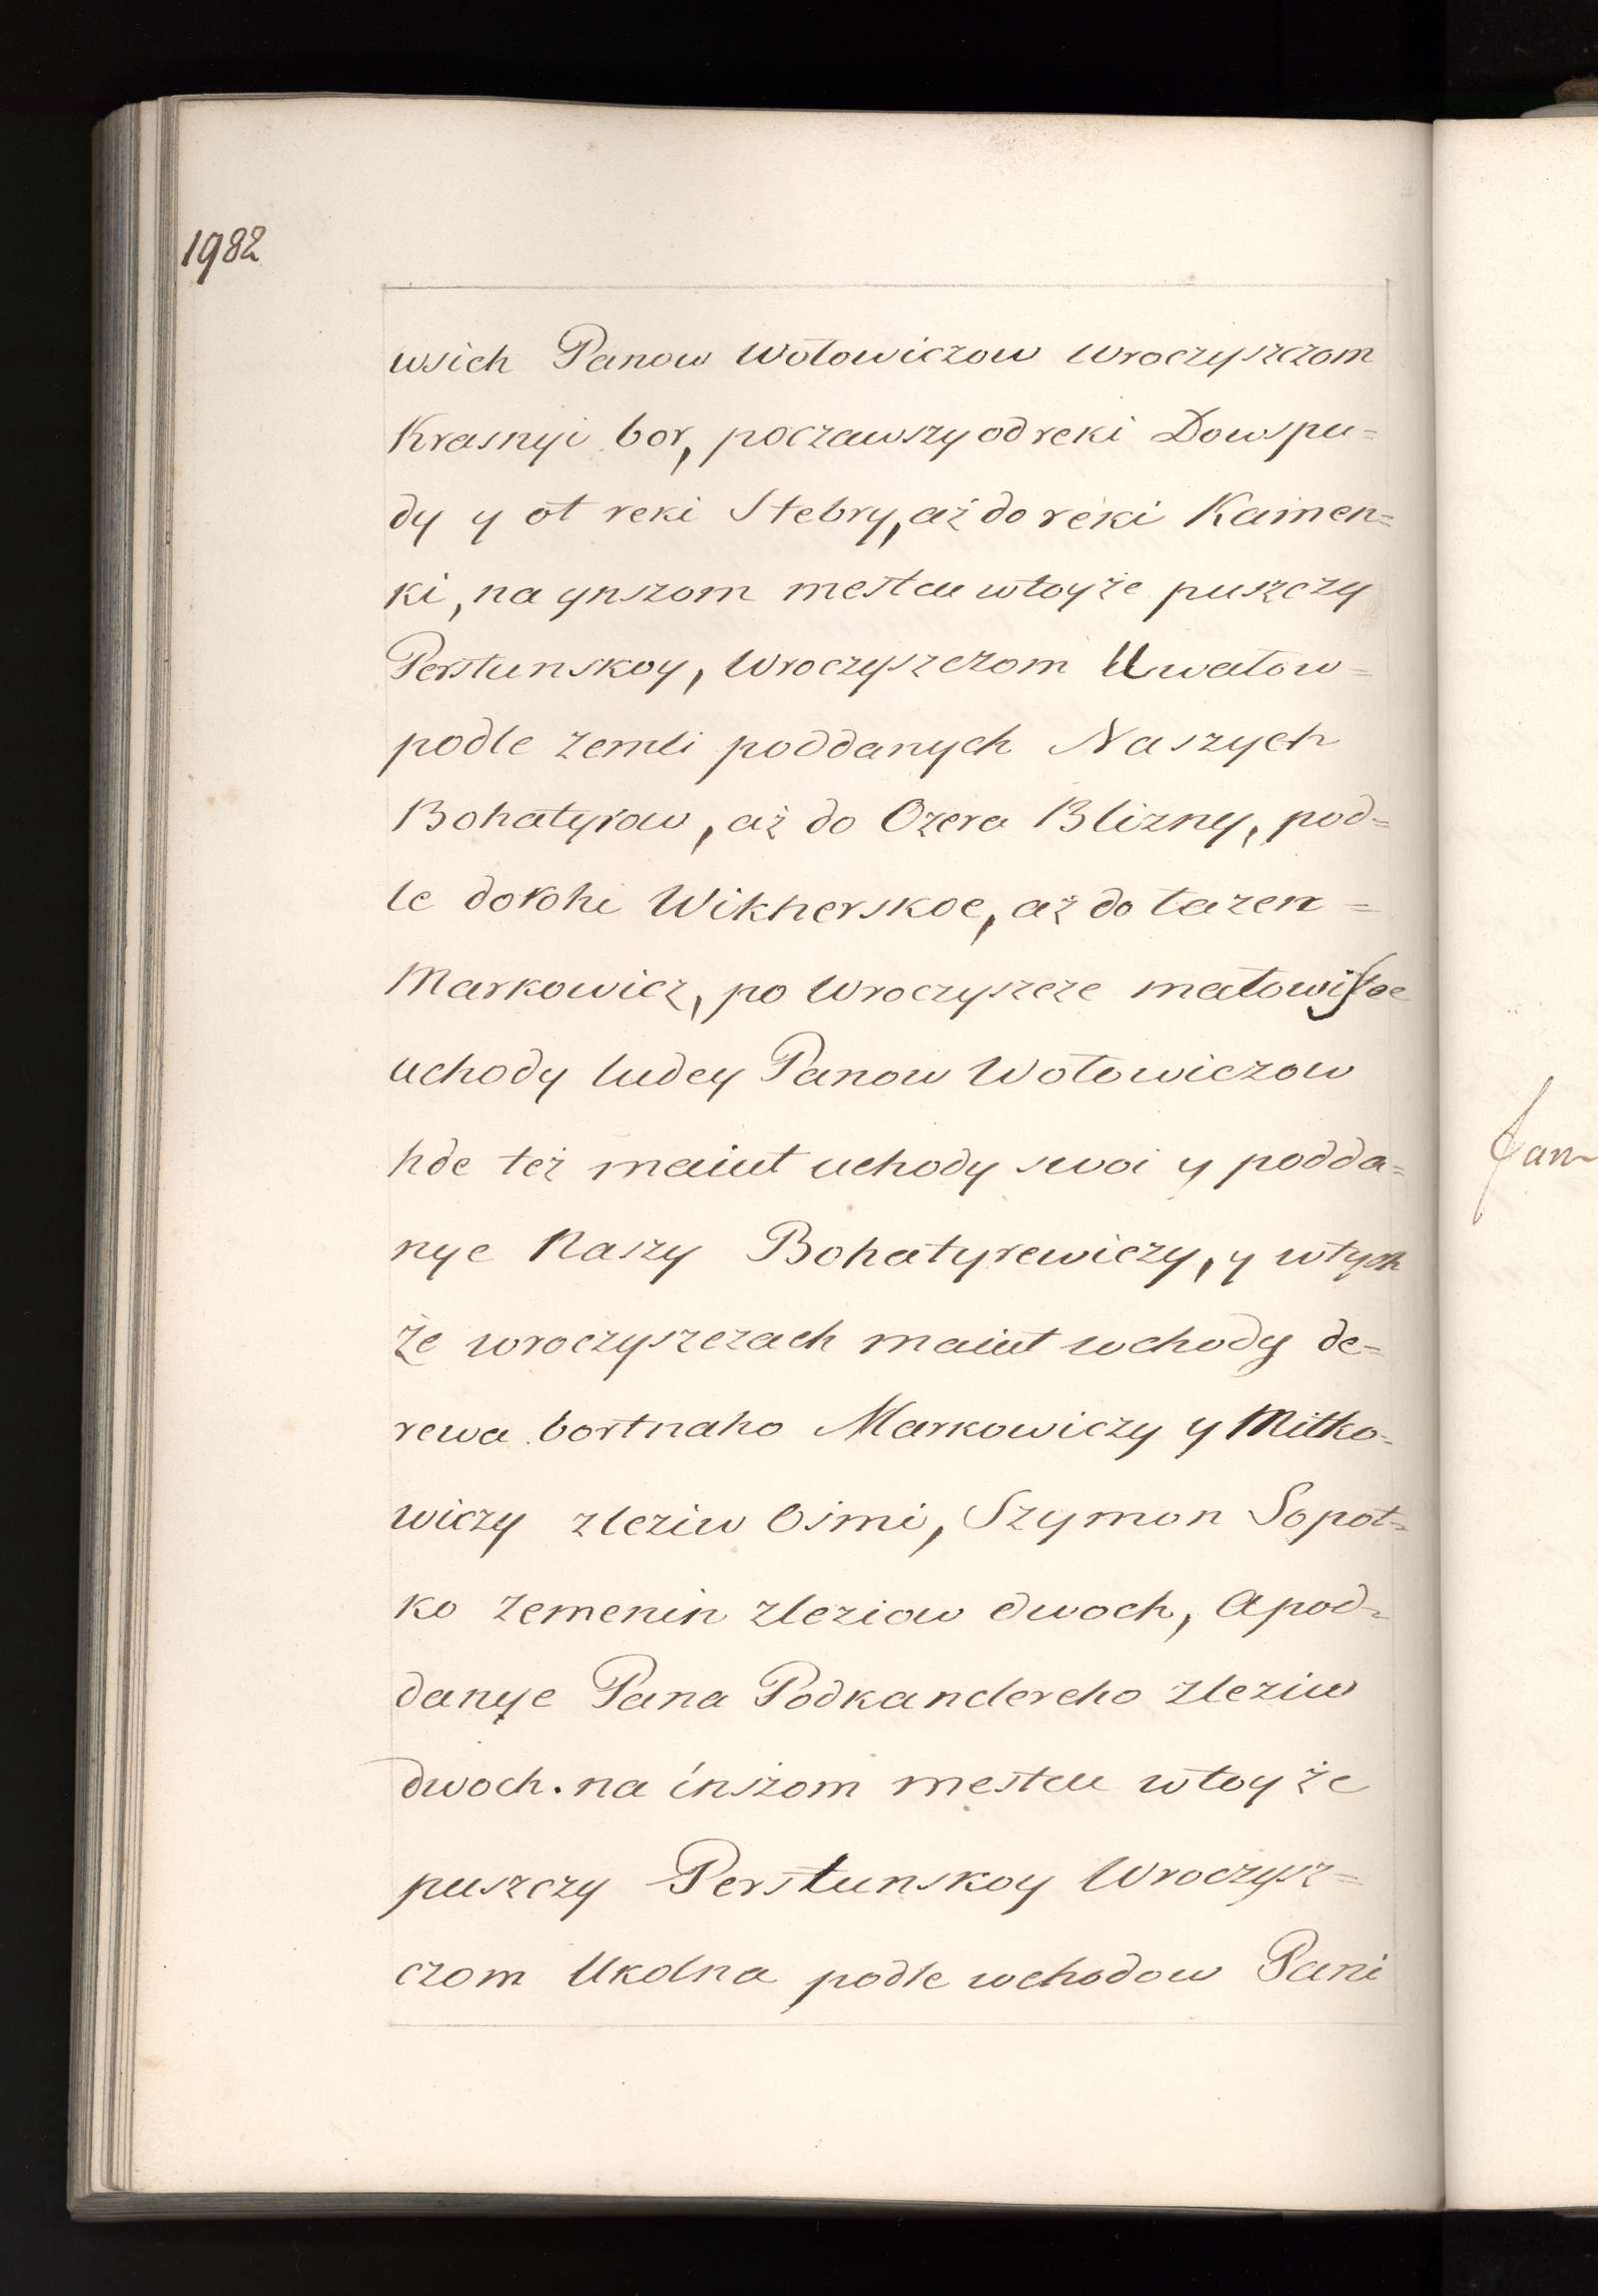 1982
wsich Panow Wołowiczow Wroczyszczom
Krasnyi bor, poczawszy od reki Dowspu=
dy y ot reki Stebry, aż do reki Kamen=
ki, na ynszom mestcu wtoyże puszczy
Perstunskoy, Wroczyszczom Uwałow=
podle zemli poddanych Naszych
Bohatyrow, aż do Ozera Blizny, pod=
le dorohi Wikherskoe, aż do łazen=
Markowicz, po Wroczyszcze
uchody ludey Panow Wołowiczow
hde też maiut uchody swoi y podda=
nye Naszy Bohatyrewiczy, y wtych
że wroczyszczach maiut wchody de=
rewa bortnaho Markowiczy y Mitko=
wiczy zleziw Osmi, Szymon Sopot=
ko zemenin zleziow dwoch, a pod=
danye Pana Podkanclereho zleziw
dwoch. na inszom mestcu wtoyże
puszczy Perstunskoy Wroczysz=
czom Ukolna podle wchodow Pani